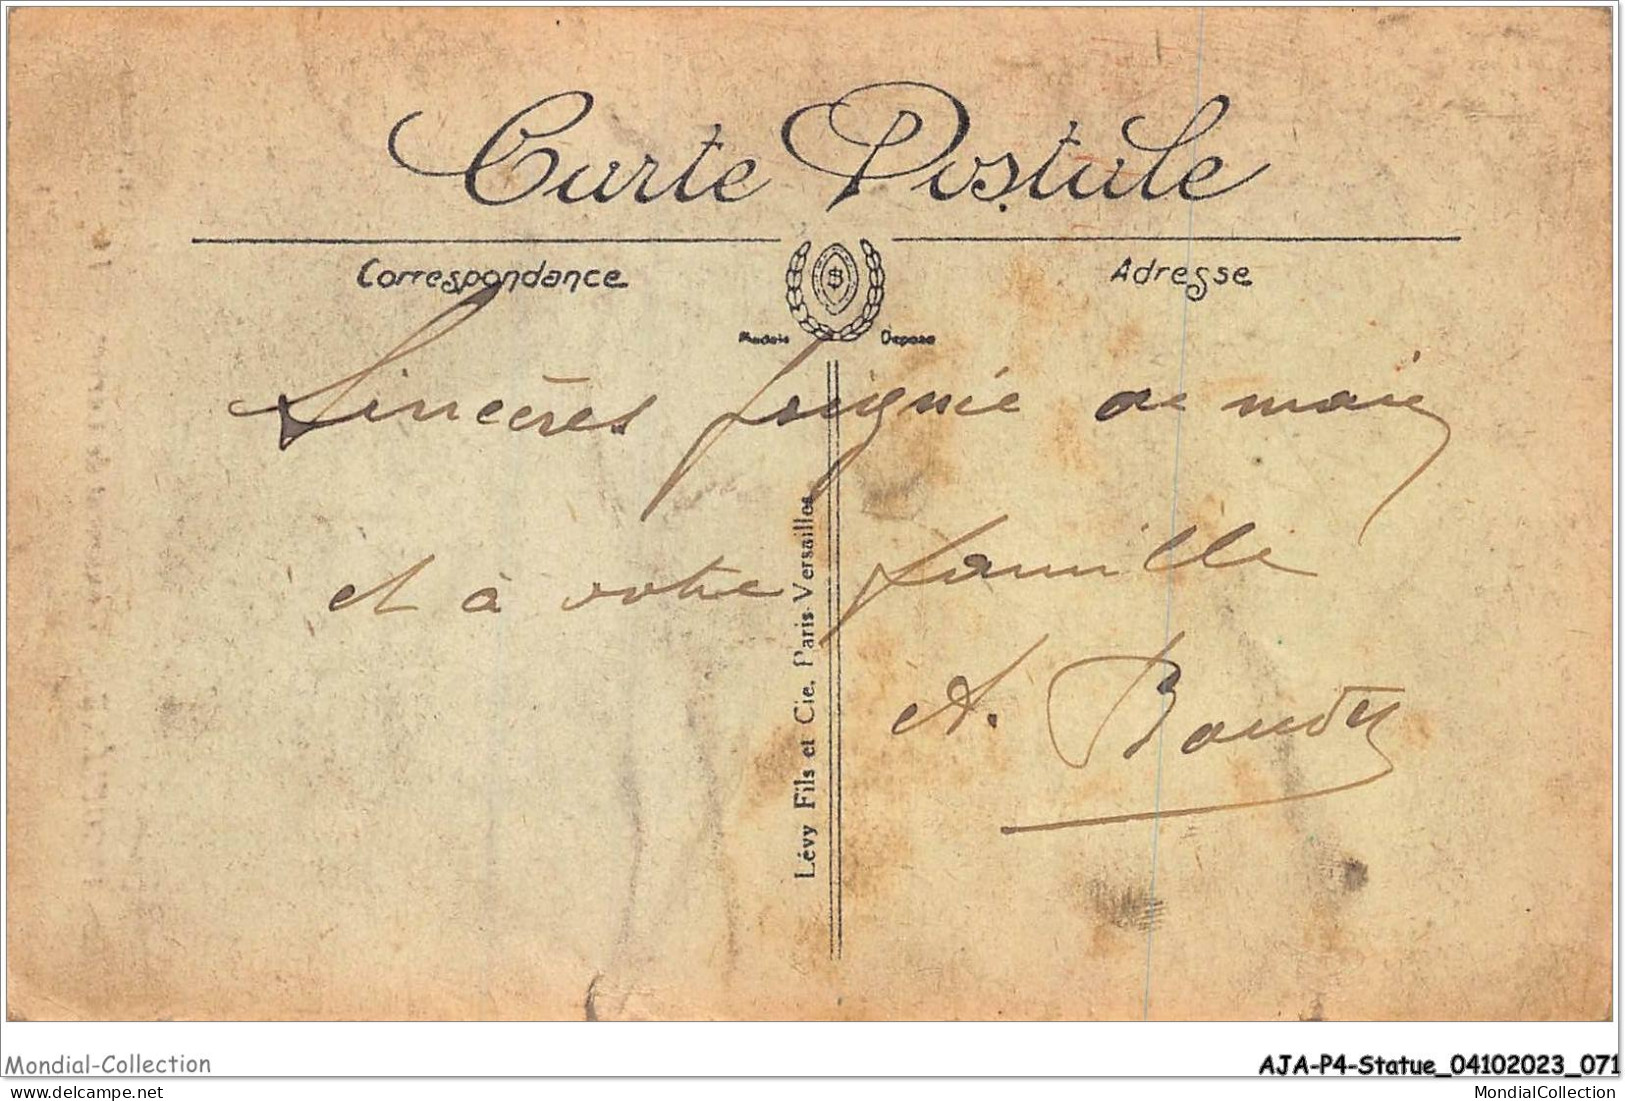 Carte Postale
Correspondance
Adresse
$
Modèle Déposé
Sincères poignée de main
et à votre famille
A.
Lévy Fils et Cie, Paris-Versailles
Mondial-Collection
AJA-P4-Statue_04102023_071
delcampe.net
MondialCollection